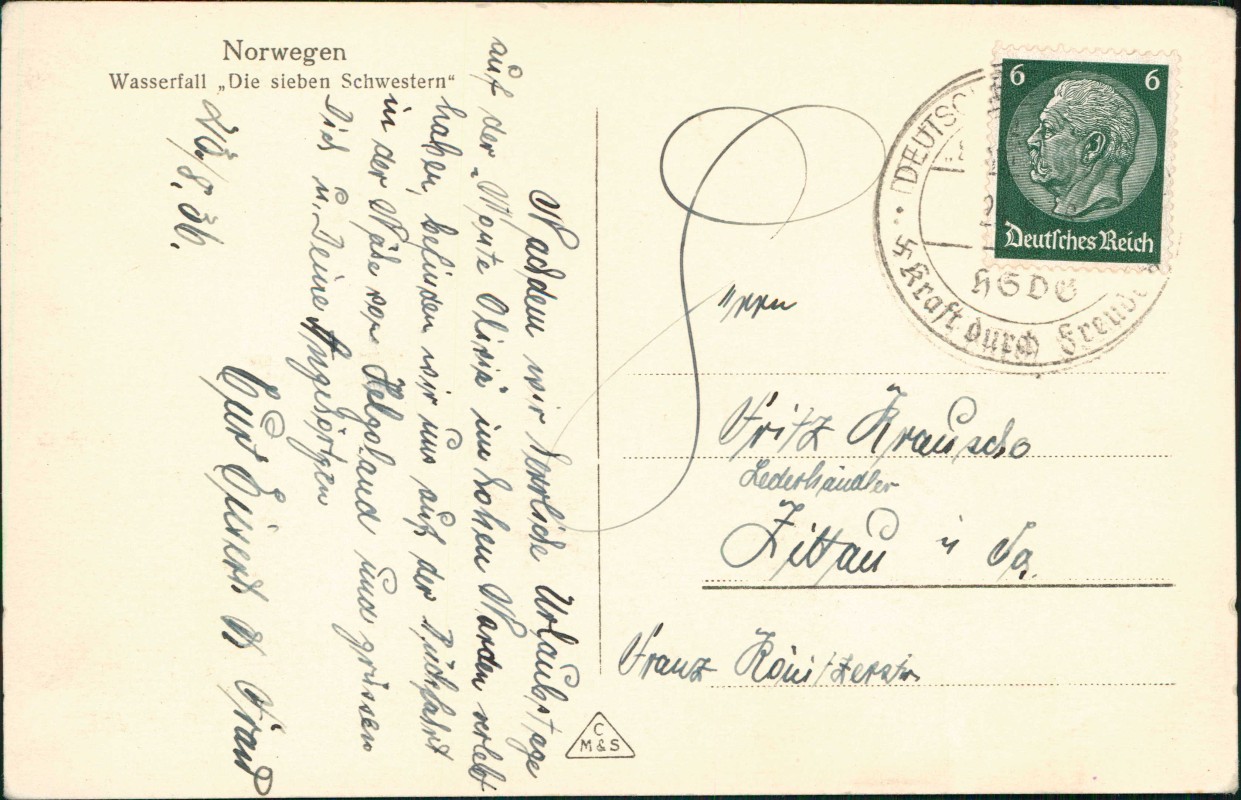 Norwegen
Wasserfall „Die sieben Schwestern“
20./8. 36.
Nachdem wir herrliche Urlaubstage
auf der „Monte Olivia“ im hohen Norden verlebt
haben, befinden wir uns auf der Rückfahrt
in der Nähe von Helgoland und grüssen
Dich u. Deine Angehörigen
Curt
u. Frau
6 6
Deutsches Reich
DEUTSC
HSDG
Kraft durch Freude
Herrn
Fritz Krausche
Lederhändler
Zittau i Sa.
Franz Könitzerstr
C
M&S